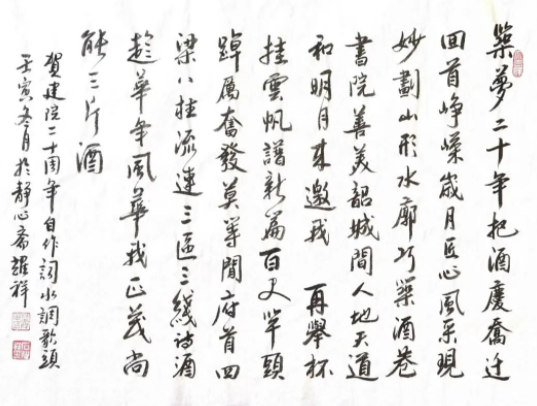 築夢二十年把酒慶喬迁
回首峥嵘歲月匠心風采現
妙劃山形水廓巧築酒巷
書院善美韶城間人地天道
和明月来邀我 再舉杯
挂雲帆譜新篇百尺竿頭
踔厲奮發莫等閒府首四
梁八柱流連三區三綫詩酒
趁華年風華我正茂尚
能三斤酒
賀建院二十周年自作詞水調歌頭
壬寅冬月於静心斋耀祥